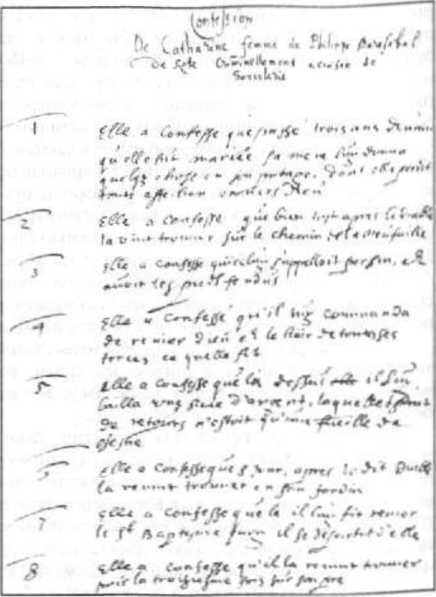 Confession
De Catharine femme de Philippe
de Criminellement accusee de
Sorcelerie
1 Elle a Confesse que passe trois ans devant
qu'elle fut mariee sa mere luy donna
quelq chose en son potage, dont elle perdit
toute affection envers Dieu
2 Elle a Confesse que bien tost apres le diable
la vint trouver sur le chemin de la
3 Elle a Confesse qu'iceluy s'appelloit et
avoit les pieds fendus
4 Elle a Confesse qu'il luy commanda
de renier Dieu et le hair de toutes ses
forces ce quelle fit
5 Elle a Confesse que la dessus il luy
bailla une piece d'argent, laquelle
de retours n'estoit qu'une fueille de
chesne
6 Elle a Confesse que 8 jour, apres le dit Diable
la revint trouver en son Jardin
7 Elle a Confesse que la il luy fit renier
le St Baptesme puis il se departit d'elle
8 Elle a Confesse qu'il la revint trouver
pour la troisiesme fois sur son pre